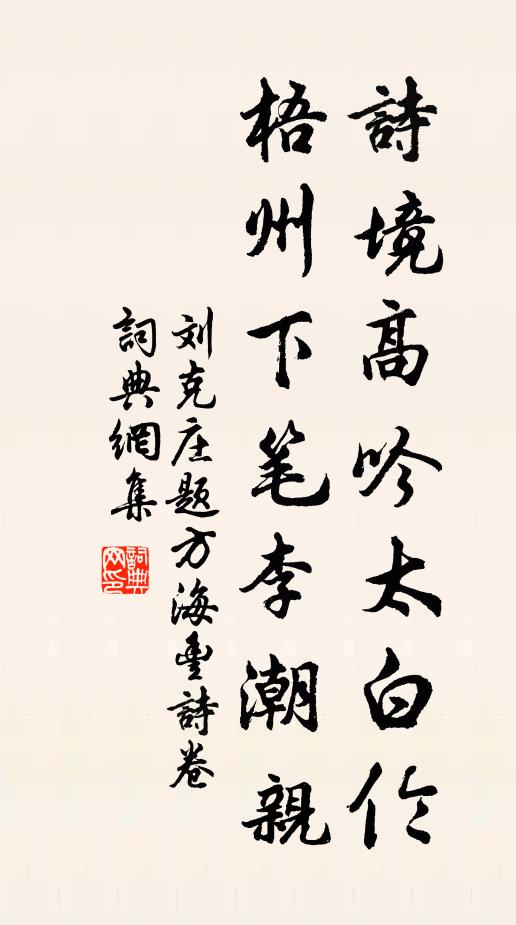 詩境高吟太白伦
梧州下笔李潮親
刘克庄题方海豐詩卷
詞典網集
詞典网印